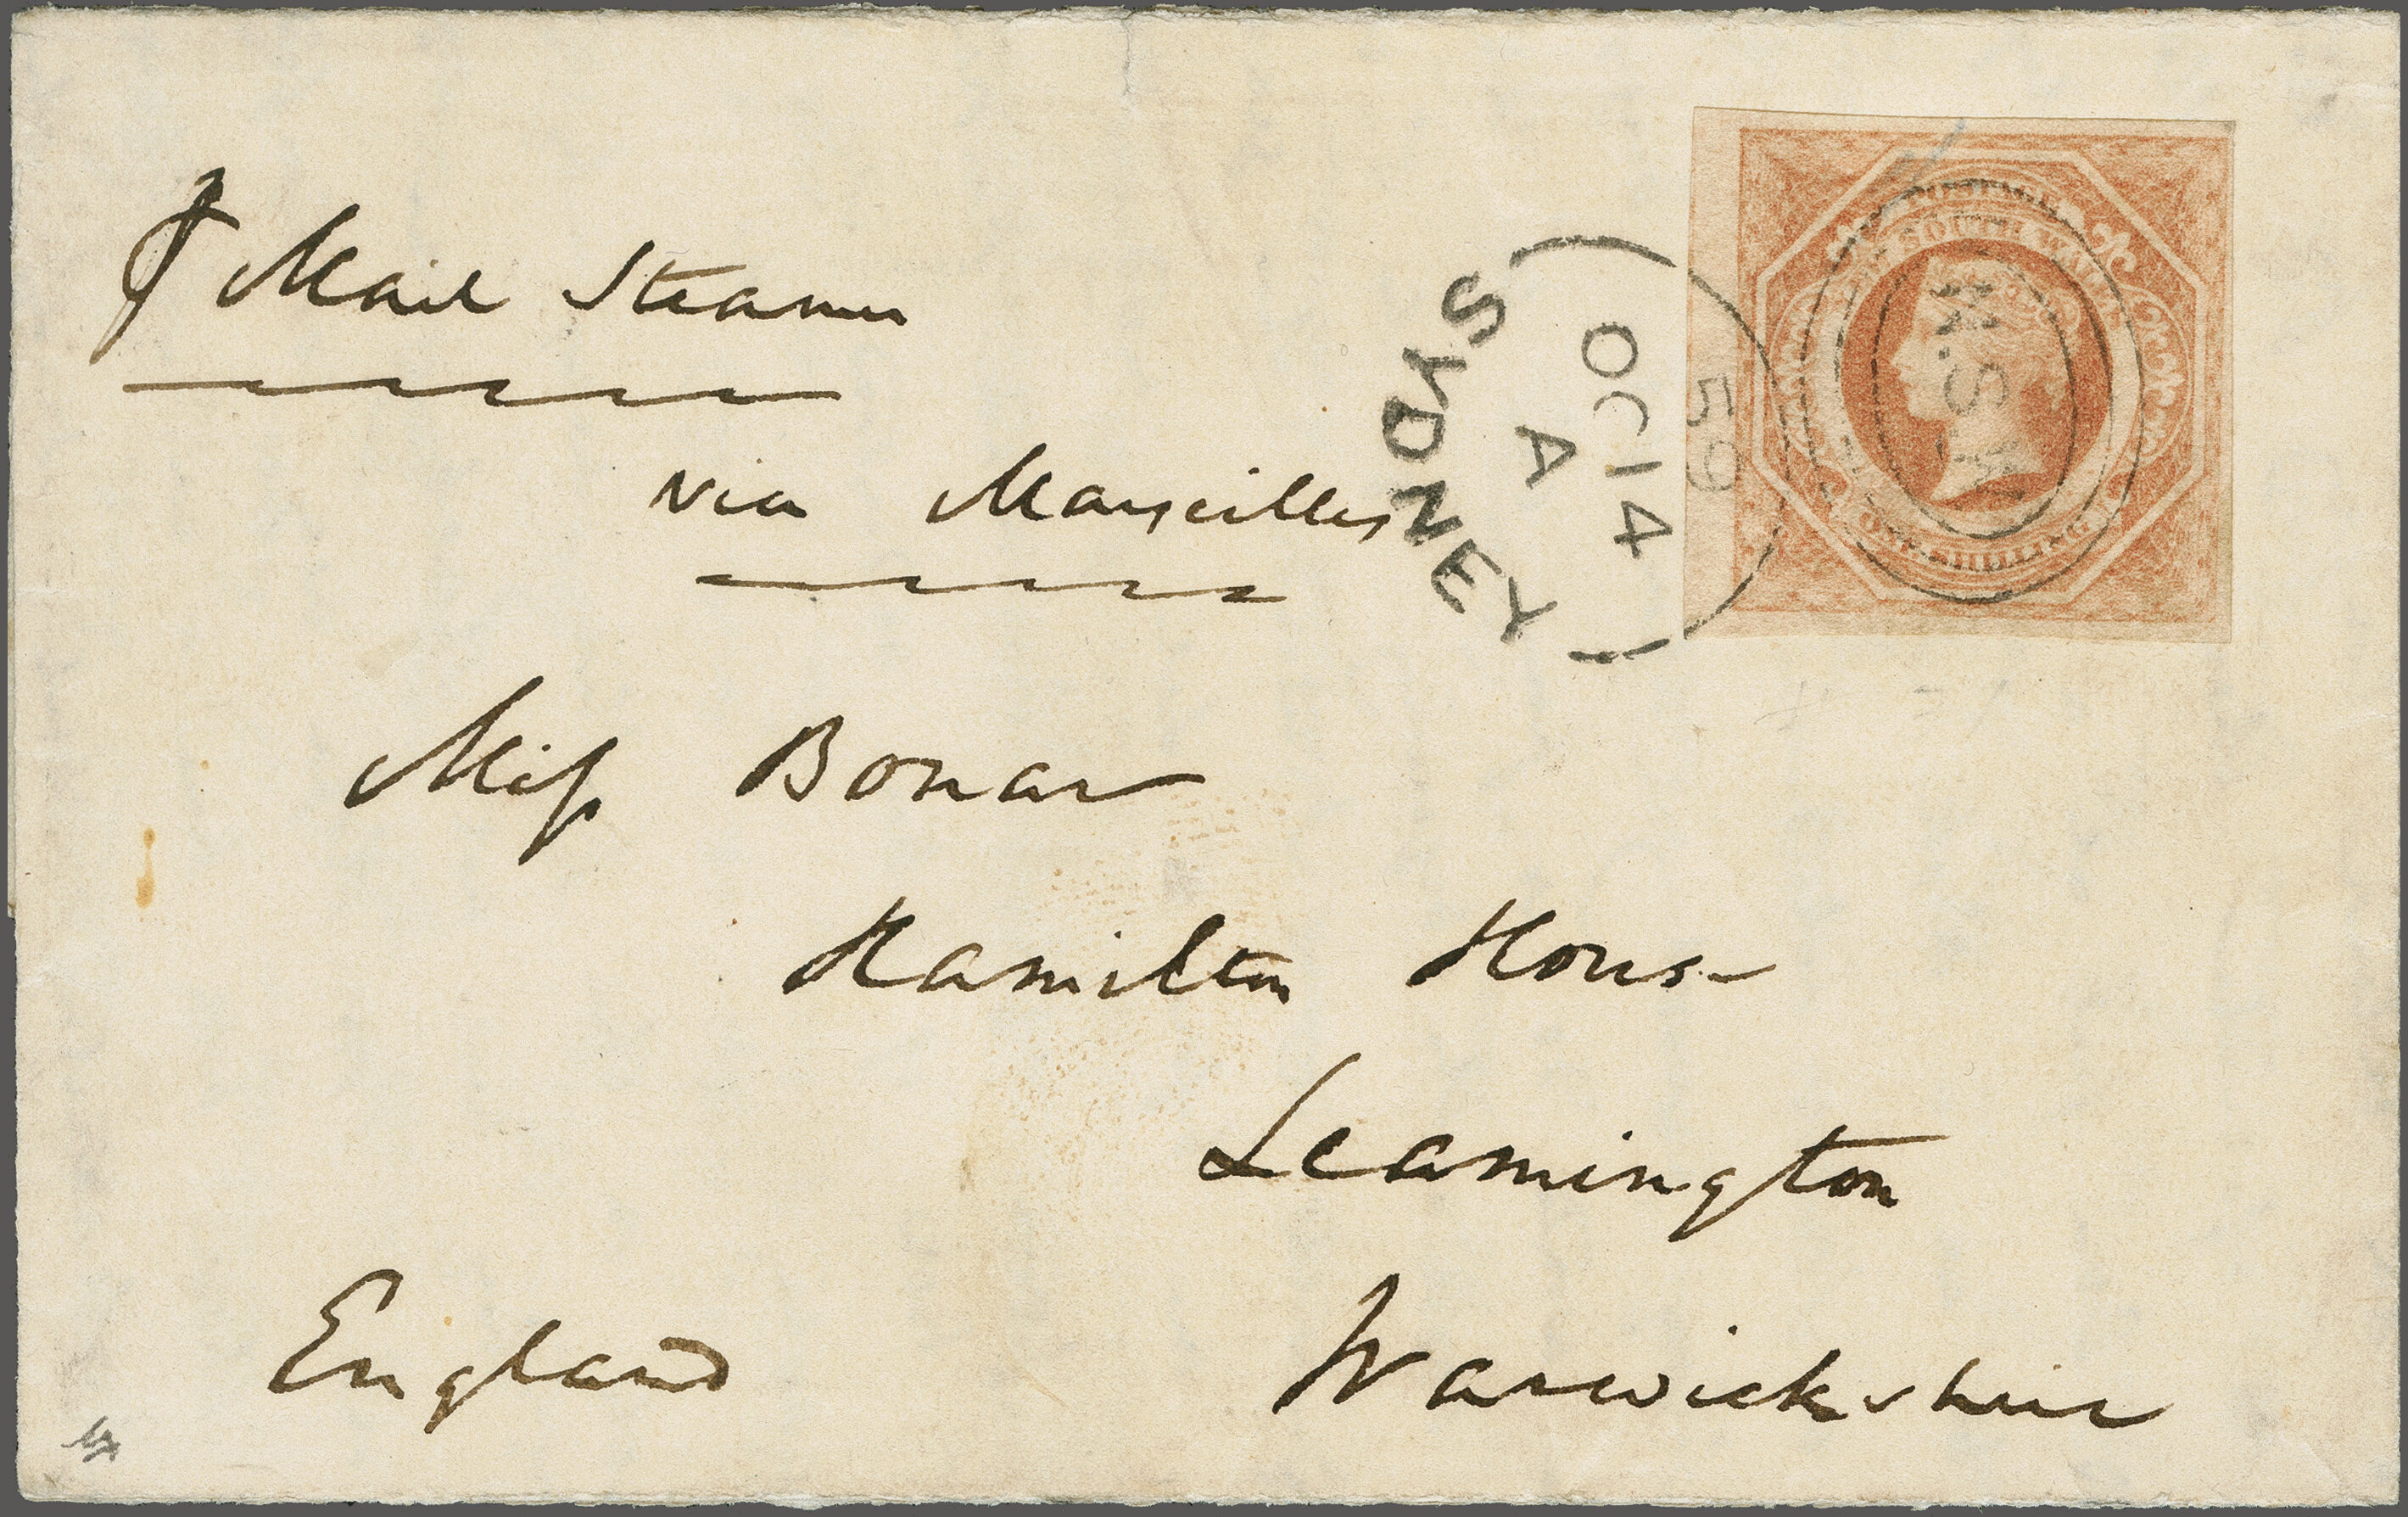 ₽ Mail Steamer
via Marseilles
Miſs Bonar
Hamilton House
Leamington
Warwickshire
England
SYDNEY
A
OC 14
59
N.S.W
SOUTH WALES
ONE SHILLING